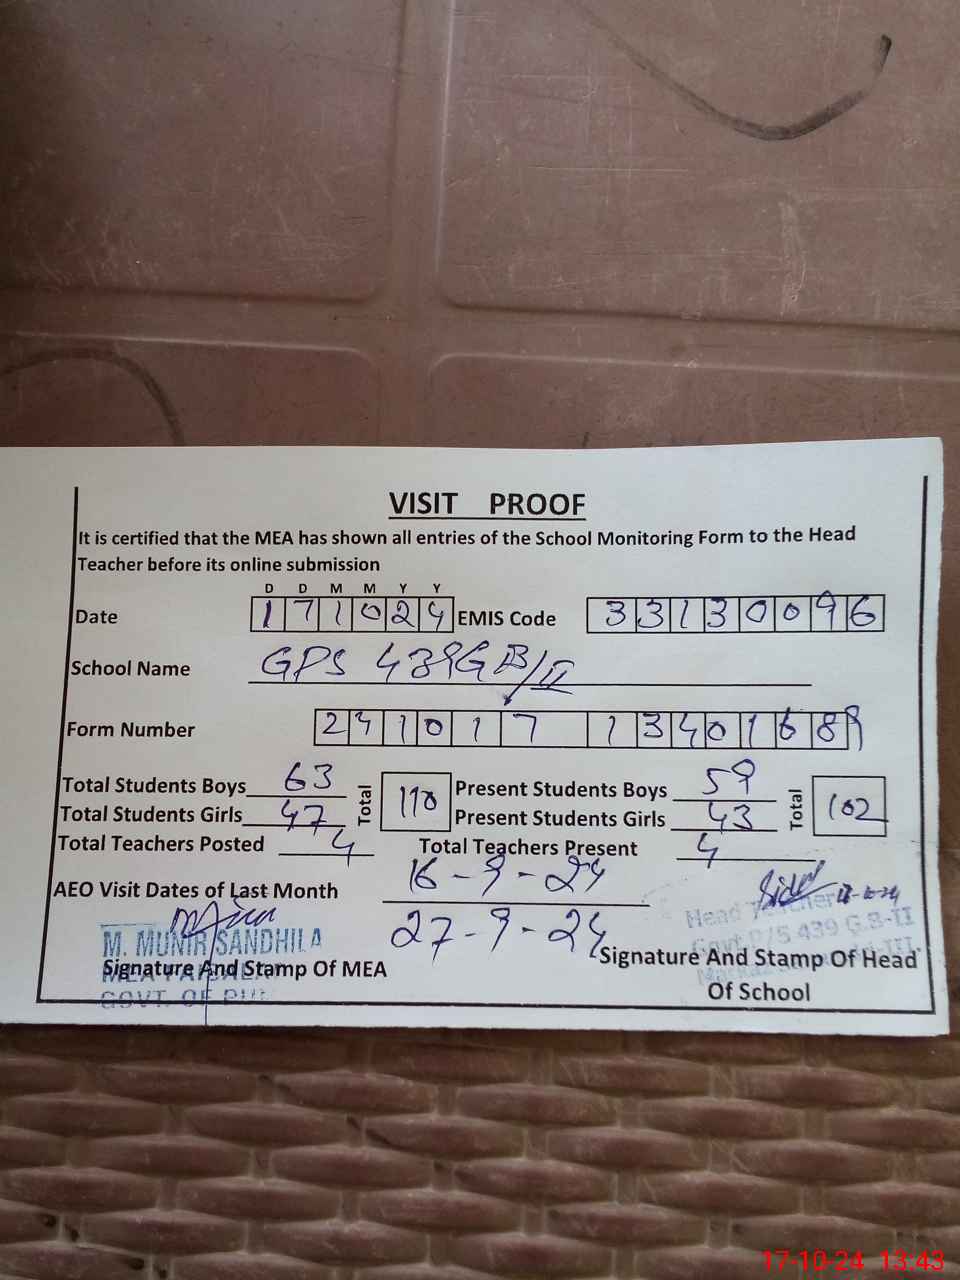 VISIT PROOF
It is certified that the MEA has shown all entries of the School Monitoring Form to the Head
Teacher before its online submission
D D M M Y Y
Date 1 7 1 0 2 4 EMIS Code 3 3 1 3 0 0 9 6
School Name GPS 439GB/II
Form Number 2 4 1 0 1 7 1 3 4 0 1 6 8 9
Total Students Boys 63 Total 110 Present Students Boys 59 Total 102
Total Students Girls 47 Present Students Girls 43
Total Teachers Posted 4 Total Teachers Present 4
AEO Visit Dates of Last Month 16-9-24
27-9-24
M. MUNIR SANDHILA
Signature And Stamp Of MEA
GOVT. OF
Head Teacher
439 G.B-II
Signature And Stamp Of Head
Of School
17-10-24 13:43